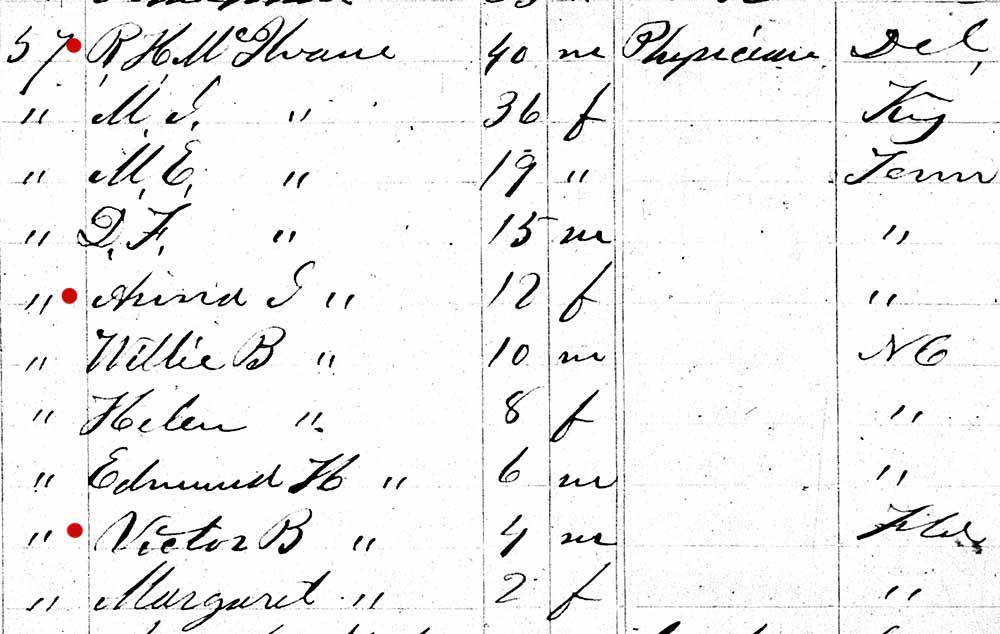 57 R. H. McIlvane 40 m Physician Del,
" M. I. " 36 f Ky
" M. E. " 19 " Tenn
" D. F. " 15 m "
" I " 12 f "
" Willie B " 10 m NC
" Helen " 8 f "
" Edmund H " 6 m "
" Victor B " 4 m Fla
" Margaret " 2 f "